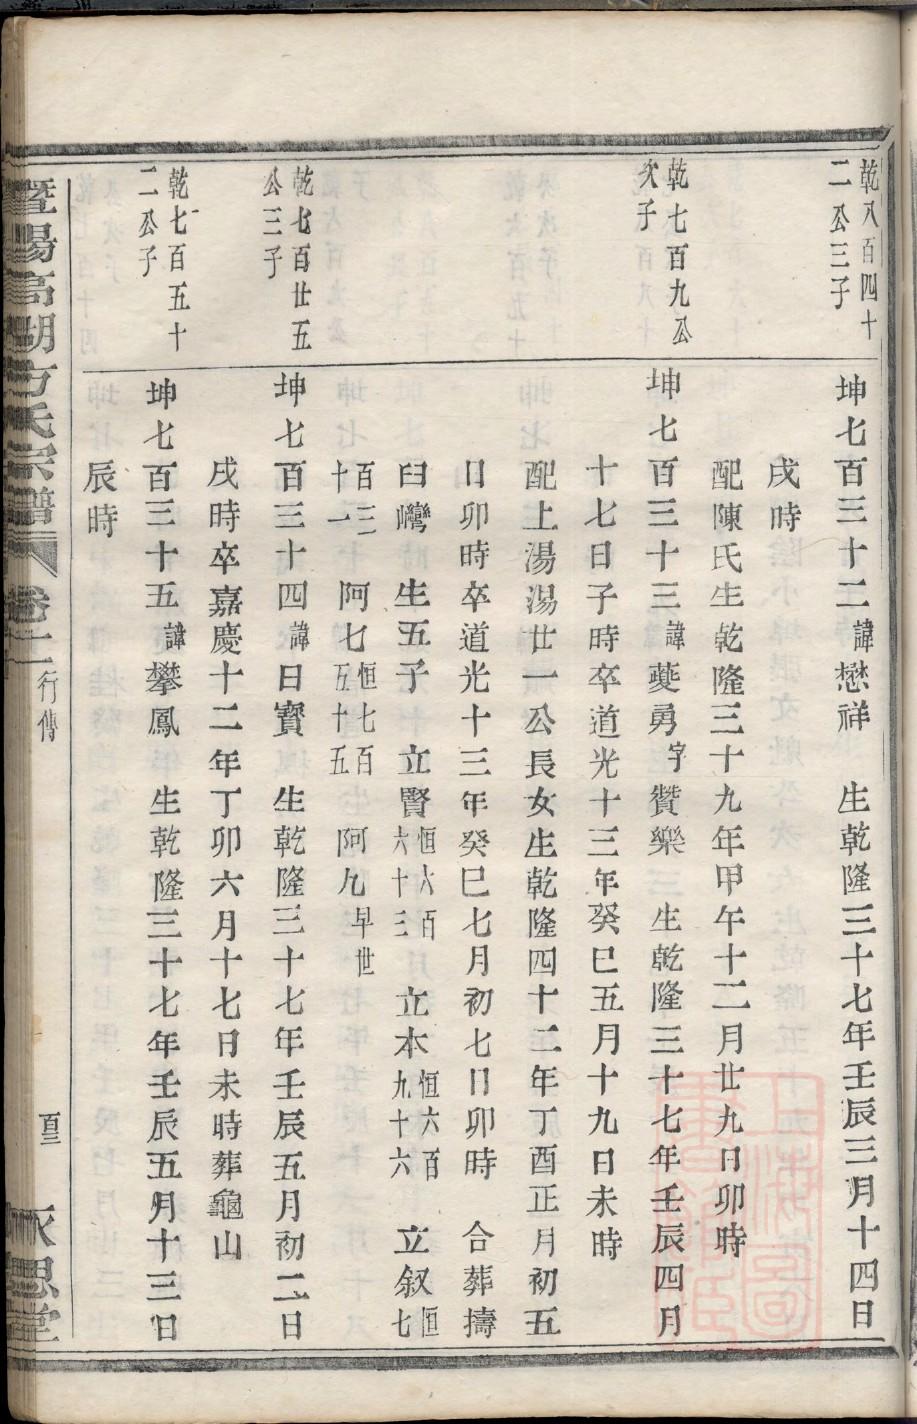 乾八百四十
二公三子
坤七百三十二諱懋祥　生乾隆三十七年壬辰三月十四日
戌時
配陳氏生乾隆三十九年甲午十二月廿九日卯時
乾七百九公
次子
坤七百三十三諱夔勇字贊樂　生乾隆三十七年壬辰四月
十七日子時卒道光十三年癸巳五月十九日未時
配上湯湯廿一公長女生乾隆四十二年丁酉正月初五
日卯時卒道光十三年癸巳七月初七日卯時　合葬擣
臼灣生五子　立賢恒六百六十三　立本恒六百九十六　立叙恒七
百三十一　阿七恒七百五十五　阿九早世
乾七百廿五
公三子
坤七百三十四諱日寶　生乾隆三十七年壬辰五月初二日
戌時卒嘉慶十二年丁卯六月十七日未時葬龜山
乾七百五十
二公子
坤七百三十五諱攀鳳　生乾隆三十七年壬辰五月十三日
辰時
暨陽高湖方氏宗譜　卷十二　行傳　永思堂